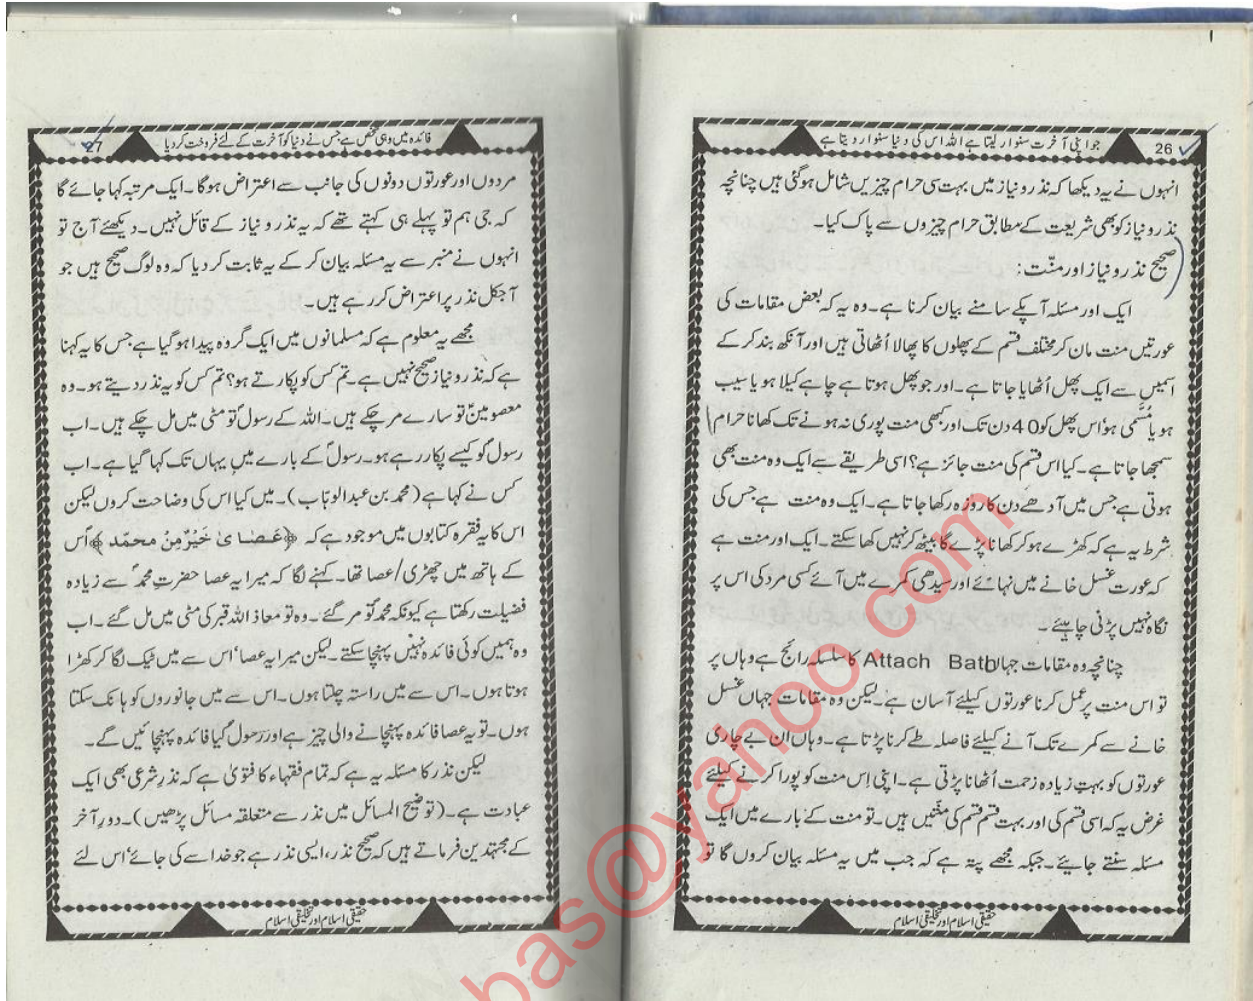 26
جو اپنی آخرت سنوار لیتا ہے اللہ اس کی دنیا سنوار دیتا ہے
انہوں نے یہ دیکھا کہ نذر و نیاز میں بہت سی حرام چیزیں شامل ہو گئی ہیں چنانچہ
نذر و نیاز کو بھی شریعت کے مطابق حرام چیزوں سے پاک کیا۔
صحیح نذر و نیاز اور منّت:
ایک اور مسئلہ آپکے سامنے بیان کرنا ہے۔ وہ یہ کہ بعض مقامات کی
عورتیں منت مان کر مختلف قسم کے پھلوں کا پھالا اُٹھاتی ہیں اور آنکھ بند کر کے
اسمیں سے ایک پھل اُٹھایا جاتا ہے۔ اور جو پھل ہوتا ہے چاہے کیلا ہو یا سیب
ہو یا مُسَّمی ہو‘ اس پھل کو 40 دن تک اور کبھی منت پوری نہ ہونے تک کھانا حرام
سمجھا جاتا ہے۔ کیا اس قسم کی منت جائز ہے؟ اسی طریقے سے ایک وہ منت بھی
ہوتی ہے جس میں آدھے دن کا روزہ رکھا جاتا ہے۔ ایک وہ منت ہے جس کی
شرط یہ ہے کہ کھڑے ہو کر کھانا پڑے گا بیٹھ کر نہیں کھا سکتے۔ ایک اور منت ہے
کہ عورت غسل خانے میں نہائے اور سیدھی کمرے میں آئے کسی مرد کی اس پر
نگاہ نہیں پڑنی چاہیئے۔
چنانچہ وہ مقامات جہاں Attach Bath کا سلسلہ رائج ہے وہاں پر
تو اس منت پر عمل کرنا عورتوں کیلئے آسان ہے۔ لیکن وہ مقامات جہاں غسل
خانے سے کمرے تک آنے کیلئے فاصلہ طے کرنا پڑتا ہے۔ وہاں ان بے چاری
عورتوں کو بہت زیادہ زحمت اُٹھانا پڑتی ہے۔ اپنی اِس منت کو پورا کرنے کیلئے
غرض یہ کہ اسی قسم کی اور بہت قسم قسم کی منّتیں ہیں۔ تو منت کے بارے میں ایک
مسئلہ سنتے جایئے۔ جبکہ مجھے پتہ ہے کہ جب میں یہ مسئلہ بیان کروں گا تو
حقیقی اسلام اور تخلیقی اسلام
27
فائدہ میں وہی شخص ہے جس نے دنیا کو آخرت کے لئے فروخت کر دیا
مردوں اور عورتوں دونوں کی جانب سے اعتراض ہوگا۔ ایک مرتبہ کہا جائے گا
کہ جی ہم تو پہلے ہی کہتے تھے کہ یہ نذر و نیاز کے قائل نہیں۔ دیکھئے آج تو
انہوں نے منبر سے یہ مسئلہ بیان کر کے یہ ثابت کر دیا کہ وہ لوگ صحیح ہیں جو
آجکل نذر پر اعتراض کر رہے ہیں۔
مجھے یہ معلوم ہے کہ مسلمانوں میں ایک گروہ پیدا ہو گیا ہے جس کا یہ کہنا
ہے کہ نذر و نیاز صحیح نہیں ہے۔ تم کس کو پکارتے ہو؟ تم کس کو یہ نذر دیتے ہو۔ وہ
معصومینؑ تو سارے مر چکے ہیں۔ اللہ کے رسولؐ تو مٹی میں مل چکے ہیں۔ اب
رسولؐ کو کیسے پکار رہے ہو۔ رسولؐ کے بارے میں یہاں تک کہا گیا ہے۔ اب
کس نے کہا ہے (محمد بن عبدالوہاب)۔ میں کیا اس کی وضاحت کروں لیکن
اس کا یہ فقرہ کتابوں میں موجود ہے کہ ﴿عَصَا یَ خَیْرٌ مِنْ محمّد﴾ اُس
کے ہاتھ میں چھڑی/عصا تھا۔ کہنے لگا کہ میرا یہ عصا حضرت محمدؐ سے زیادہ
فضیلت رکھتا ہے کیونکہ محمدؐ تو مر گئے۔ وہ تو معاذ اللہ قبر کی مٹی میں مل گئے۔ اب
وہ ہمیں کوئی فائدہ نہیں پہنچا سکتے۔ لیکن میرا یہ عصا‘ اس سے میں ٹیک لگا کر کھڑا
ہوتا ہوں۔ اس سے میں راستہ چلتا ہوں۔ اس سے میں جانوروں کو ہانک سکتا
ہوں۔ تو یہ عصا فائدہ پہنچانے والی چیز ہے اور رسولؐ کیا فائدہ پہنچائیں گے۔
لیکن نذر کا مسئلہ یہ ہے کہ تمام فقہاء کا فتویٰ ہے کہ نذرِ شرعی بھی ایک
عبادت ہے۔ (توضیح المسائل میں نذر سے متعلقہ مسائل پڑھیں)۔ دورِ آخر
کے مجتہدین فرماتے ہیں کہ صحیح نذر، ایسی نذر ہے جو خدا سے کی جائے‘ اس لئے
حقیقی اسلام اور تخلیقی اسلام
bas@yahoo.com